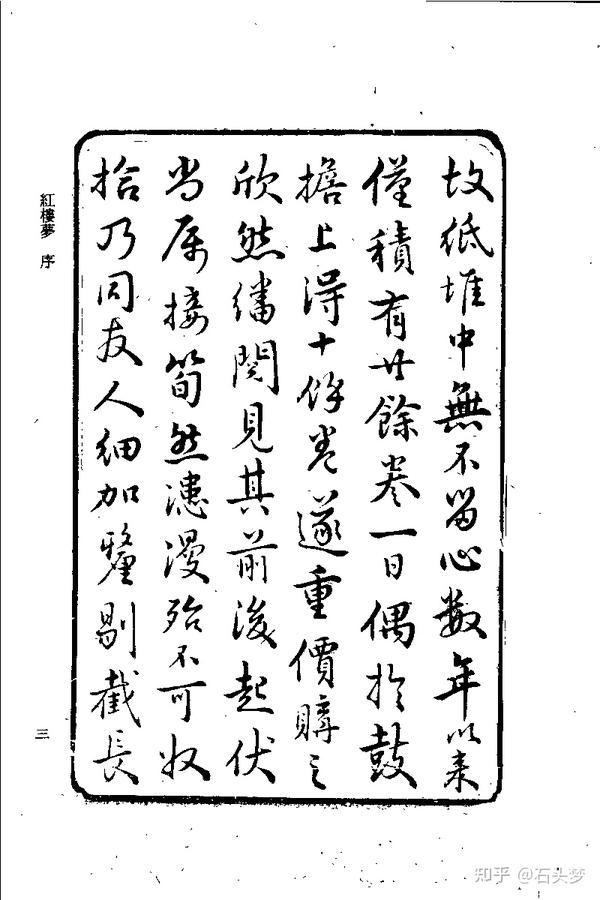 故紙堆中無不留心数年以来
僅積有廿餘卷一日偶扵鼓
擔上得十餘卷遂重價購之
欣然繙閱見其前後起伏
尚属接筍然漶漫殆不可収
拾乃同友人細加釐剔截長
紅樓夢 序
三
知乎 @石头梦